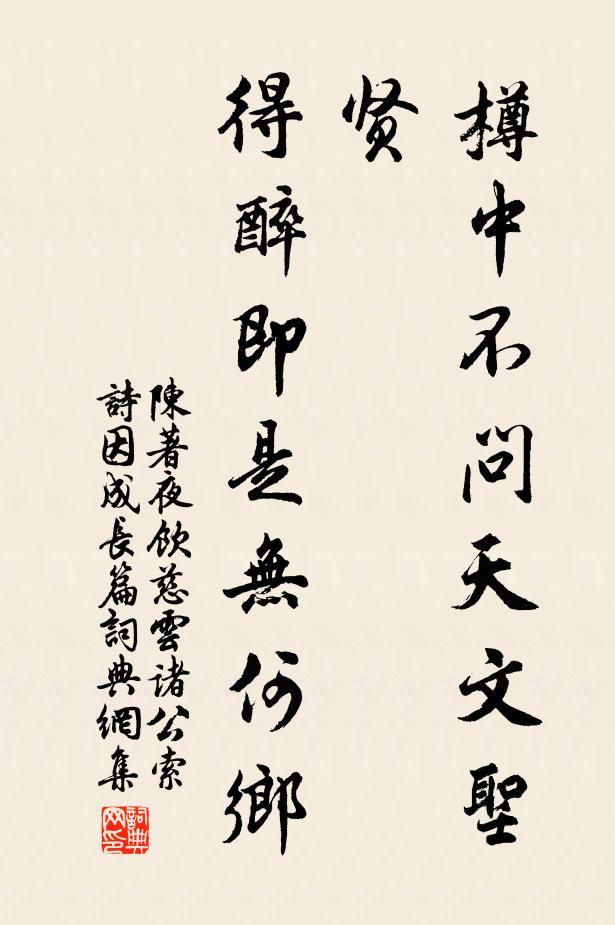 樽中不问天文聖
贤
得醉即是無何鄉
陳著夜飲慈雲诸公索
詩因成長篇詞典網集
詞典
网印